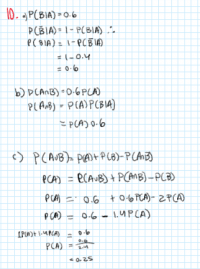 10. a) P(B|A) = 0.6
P(B̄|A) = 1 - P(B|A) ∴
P(B|A) = 1 - P(B̄|A)
= 1 - 0.4
= 0.6
b) P(A∩B) = 0.6 P(A)
P(A∩B) = P(A) P(B|A)
= P(A) 0.6
c) P(A∪B) = P(A) + P(B) - P(A∩B)
P(A) = P(A∪B) + P(A∩B) - P(B)
P(A) = 0.6 + 0.6P(A) - 2P(A)
P(A) = 0.6 - 1.4 P(A)
1P(A) + 1.4P(A) = 0.6
P(A) = 0.6/2.4
= 0.25